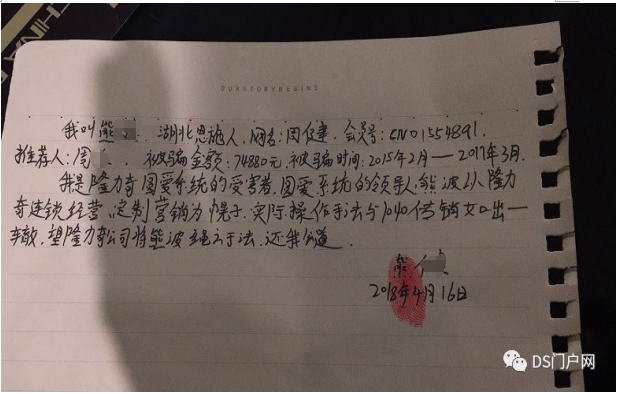 CHINA
OURSTORYBEGINS
我叫熊 湖北恩施人,网名:周俊建,会员号:CN01554891.
推荐人:周 被骗金额:74880元 被骗时间:2015年2月—2017年3月.
我是隆力奇圆爱系统的受害者,圆爱系统的领导人熊波以隆力
奇连锁经营、定制营销为幌子.实际操作手法与1040传销如出一
辙,望隆力奇公司将熊波绳之于法.还我公道
熊
2018年4月16日
DS门户网